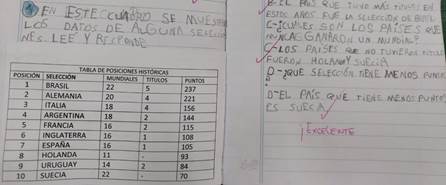 EN ESTE CUADRO SE MUESTRA
LOS DATOS DE ALGUNA SELECCIO
NES. LEE Y RESPONDE
TABLA DE POSICIONES HISTÓRICAS
POSICIÓN SELECCIÓN MUNDIALES TITULOS PUNTOS
1 BRASIL 22 5 237
2 ALEMANIA 20 4 221
3 ITALIA 18 4 156
4 ARGENTINA 18 2 144
5 FRANCIA 16 2 115
6 INGLATERRA 16 1 108
7 ESPAÑA 16 1 105
8 HOLANDA 11 - 93
9 URUGUAY 14 2 84
10 SUECIA 22 - 70
B-EL PAÍS QUE TUVO MÁS TITULOS EN
ESTOS AÑOS FUE LA SELECCIÓN DE
C-¿CUÁLES SON LOS PAÍSES QUE
NUNCA GANARON UN MUNDIAL?
C-LOS PAÍSES QUE NO TUVIERON
FUERON HOLANDA Y SUECIA
D-¿QUE SELECCIÓN TIENE MENOS PUNTOS
D-EL PAÍS QUE TIENE MENOS PUNTOS
ES SUECIA
¡EXCELENTE